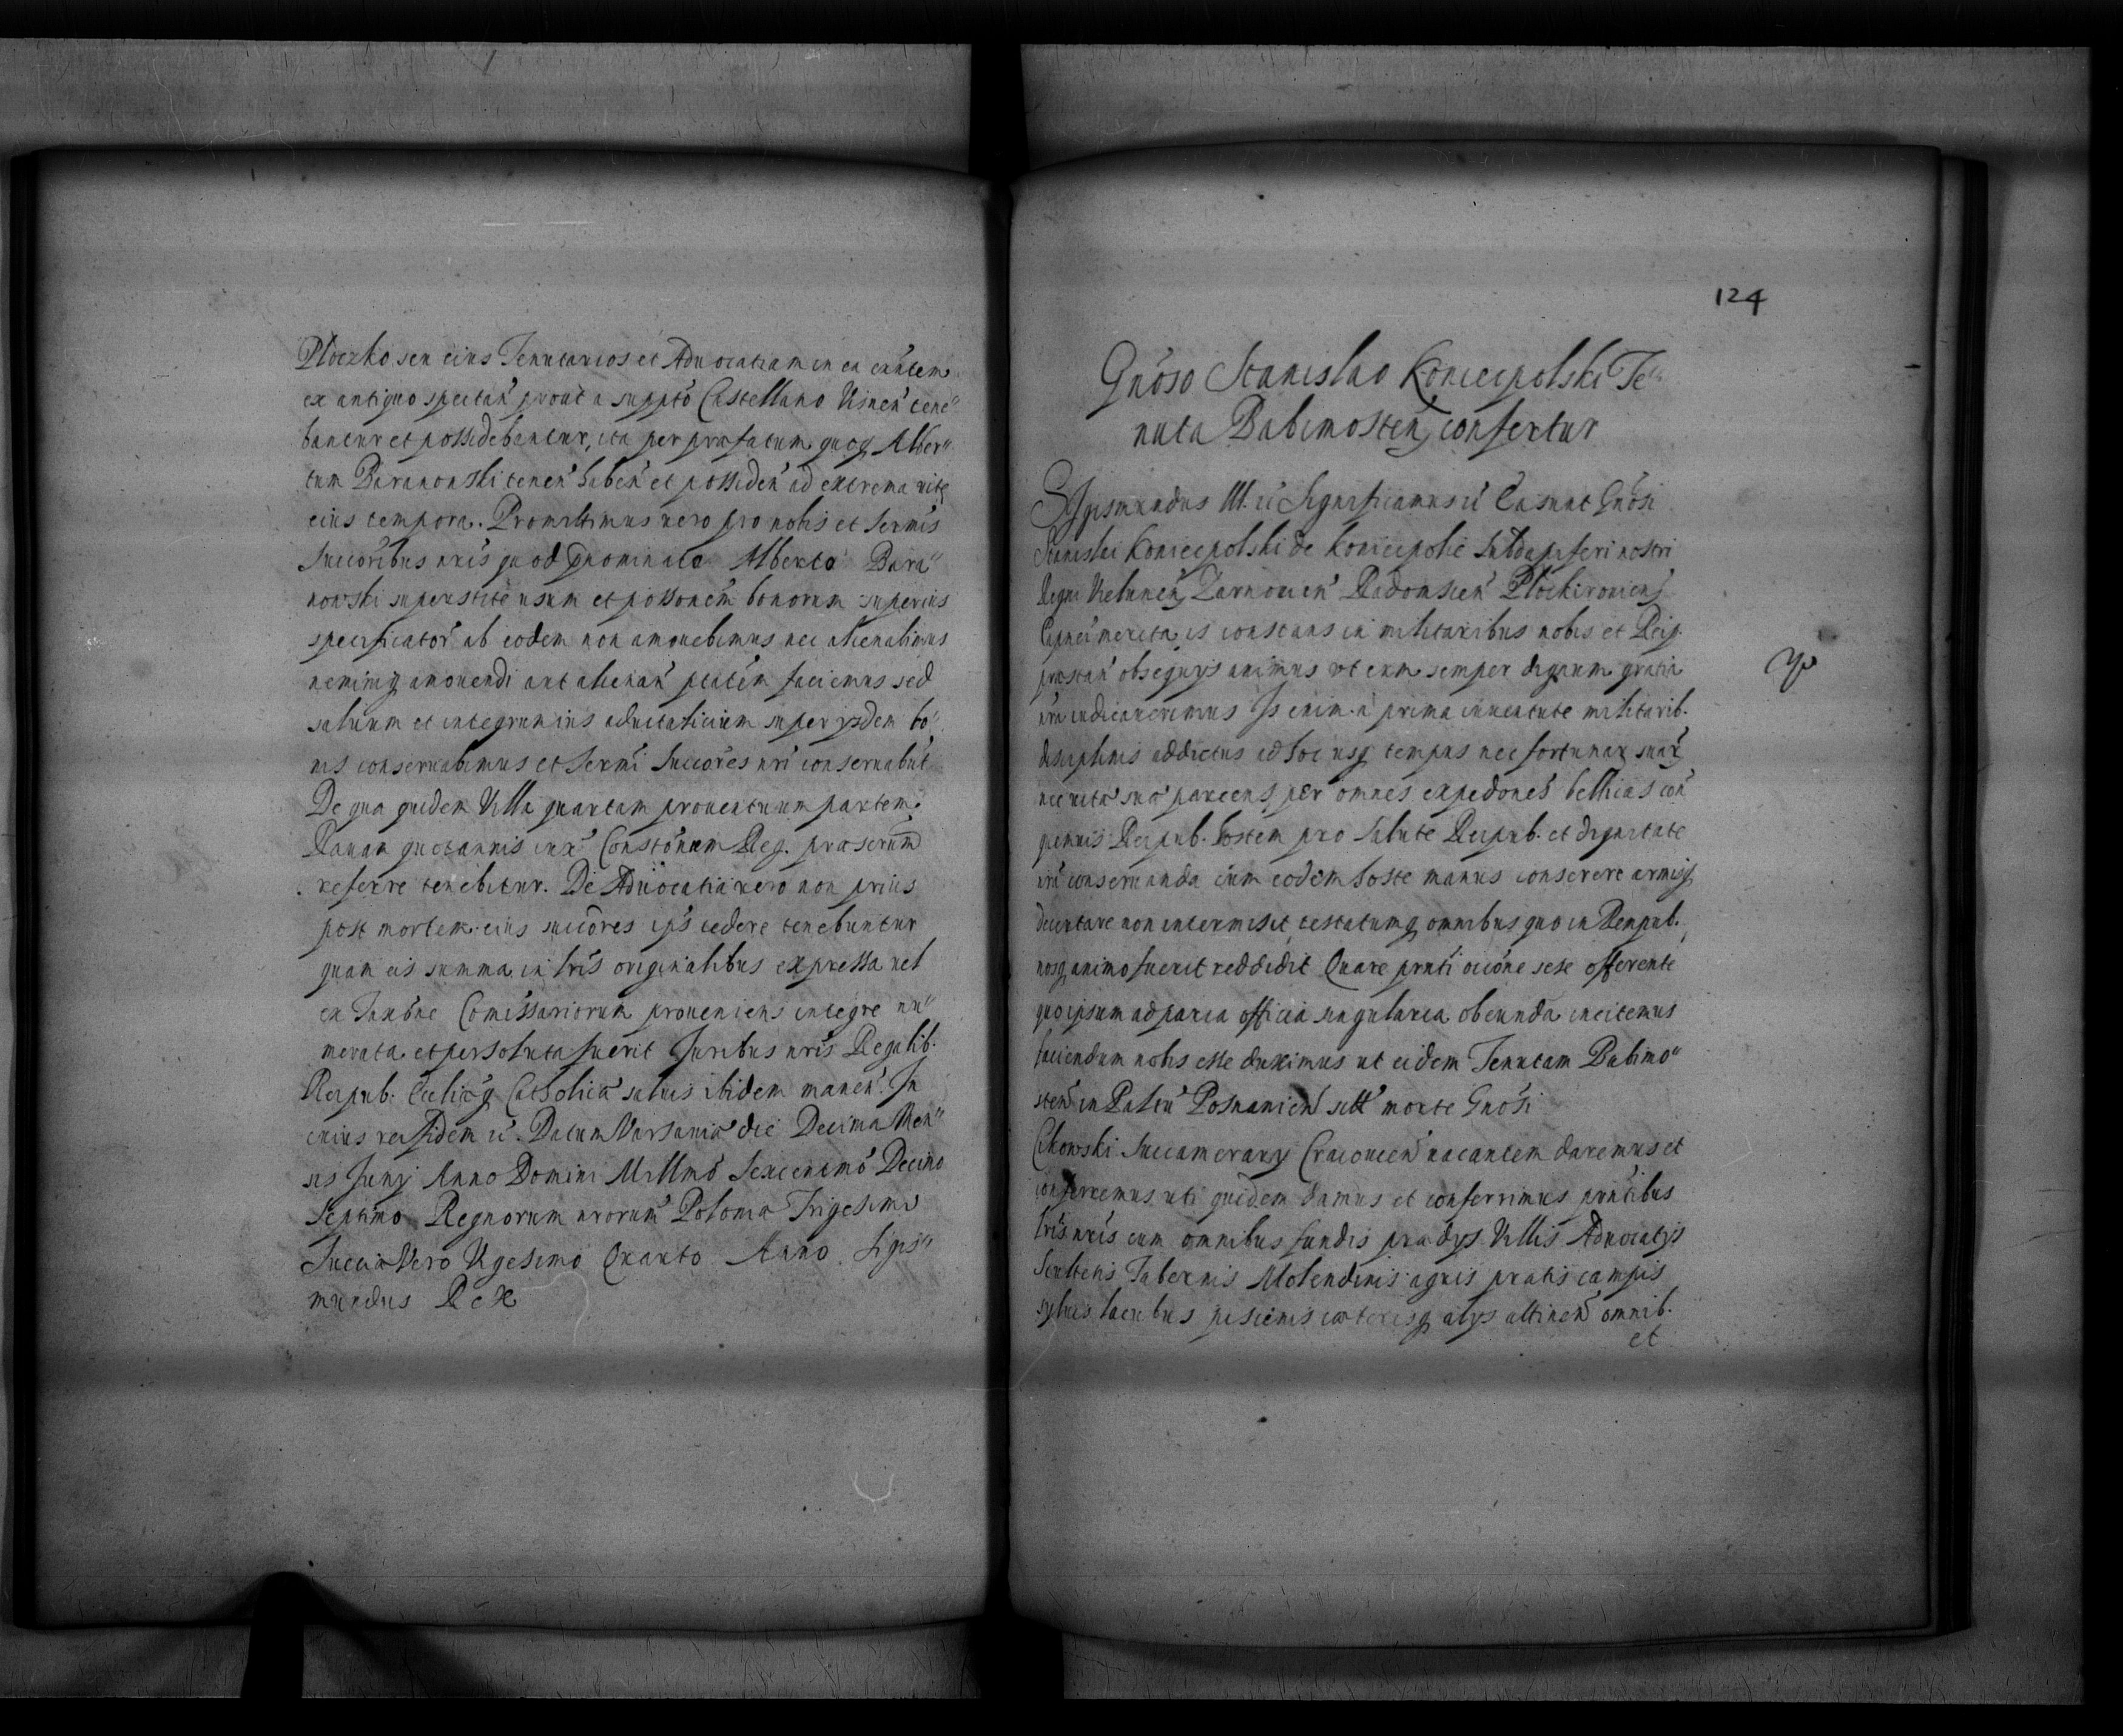 Ploczko seu eius Tenutarios et Aduocatiam in ea exñtem
ex antiquo spectañ prout a suppto Castellano Visneñ tene"
bantur et possidebantur, ita per præfatum quoq Alber"
tum Baranowski teneñ habeñ et possideñ ad extrema vitę
eius tempora. Promittimus uero pro nobis et Sermis
Succoribus nris quod prænominato Alberto Bara"
nowski superstite usum et possonem bonorum superius
specificator ab eodem non amouebimus nec alienabimus
neminiq amouendi aut alienañ ptatem faciemus sed
saluum et integrum ius aduitalicium super ysdem bo"
nis conseruabimus et Sermi Succores nri conseruabut
De qua quidem Villa quartam prouentuum partem
Rauam quotannis iux Constonem Reg. præserum
referre tenebitur. De Aduocatia uero non prius
post mortem eius succores ips cedere tenebuntur
quam eis summa in lris originalibus expressa uel
ex Taxone Comissariorum proueniens integre nu"
merata et persoluta fuerit Juribus nris Regalib.
Reipub. Eccliæq Catholicæ saluis ibidem maneñ. In
cuius rei fidem &. Datum Varsauiæ die Decima Men"
sis Juny Anno Domini Millmo Sexcentmo Decimo
Septimo Regnorum nrorum Poloniæ Trigesimo
Sueciæ Vero Vigesimo Quarto Anno. Sigis"
mundus Rex
124
Gnoso Stanislao Koniecpolski Te"
nuta Babimosteñ confertur
Sigismundus III. & Significamus & Ea sunt Gnosi
Stanislai Koniecpolski de Koniecpolie Subdapiferi nostri
Regni Veluneñ Zarnouieñ Radomscieñ Ploskirouieñ
Capnei merita, is constans in militaribus nobis et Reip.
præstañ obsequys animus vt eum semper dignum gratia
nra iudicaueremus Is enim a prima iuuentute militarib.
disciplinis addictus ad hoc usq tempus nec fortunar suar
nec uitæ suæ parcens per omnes expedones bellicas con
Reipub. hostem pro salute Reipub. et dignitate
nra conseruanda cum eodem hoste manus conserere armisq
decertare non intermisit, testatumq omnibus quo in Rempub.
nosq animo fuerit reddidit Quare prnti occone sese offerente
quo ipsum ad paria officia singularia obeunda incitemus
faciendum nobis esse duximus ut eidem Tenutam Babimo"
steñ in Paltu Posnanieñ morte Gnosi
Cikowski Succamerary Cracouieñ uacantem daremus et
conferremus uti quidem damus et conferrimus prntibus
lris nris cum omnibus fundis prædys Villis Aduocatys
Scultetis Tabernis Molendinis agris pratis campis
syluis lacubus piscinis cæterisq alys attineñ omnib.
et